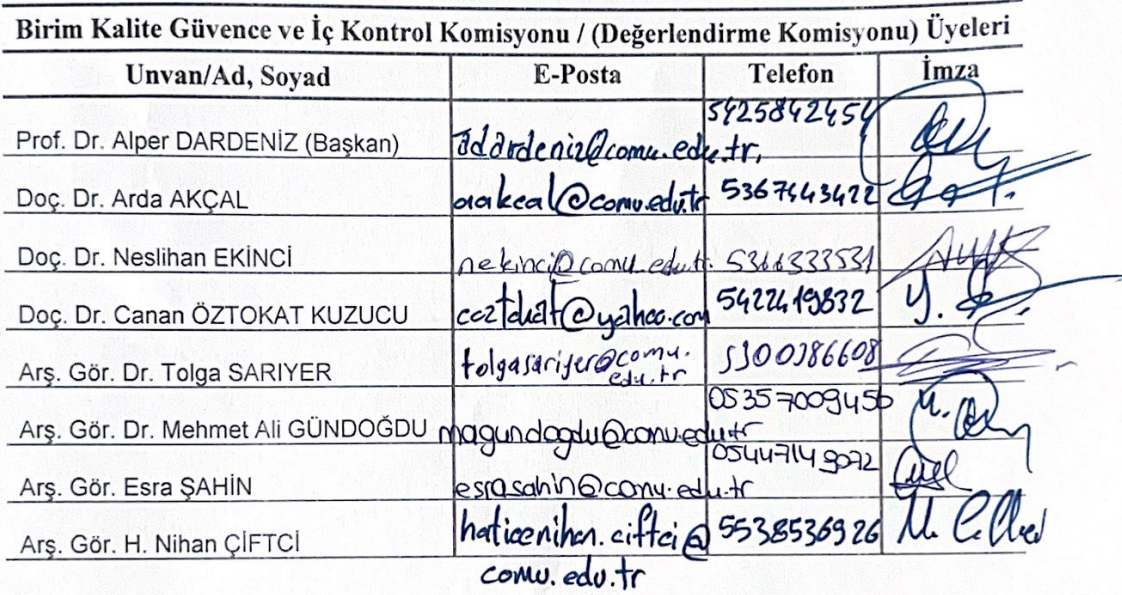 Birim Kalite Güvence ve İç Kontrol Komisyonu / (Değerlendirme Komisyonu) Üyeleri
Unvan/Ad, Soyad E-Posta Telefon İmza
Prof. Dr. Alper DARDENİZ (Başkan) adardeniz@comu.edu.tr. 5425842454
Doç. Dr. Arda AKÇAL aakcal@comu.edu.tr 5367443422
Doç. Dr. Neslihan EKİNCİ nekinci@comu.edu.tr 5366333531
Doç. Dr. Canan ÖZTOKAT KUZUCU 5422419832
Arş. Gör. Dr. Tolga SARIYER tolgasariyer@comu.
edu.tr
Arş. Gör. Dr. Mehmet Ali GÜNDOĞDU magundogdu@comu.edu.tr 05357009456
Arş. Gör. Esra ŞAHİN esrasahin@comu.edu.tr 05447149072
Arş. Gör. H. Nihan ÇİFTCİ haticenihan.ciftci@ 5538536926
comu.edu.tr